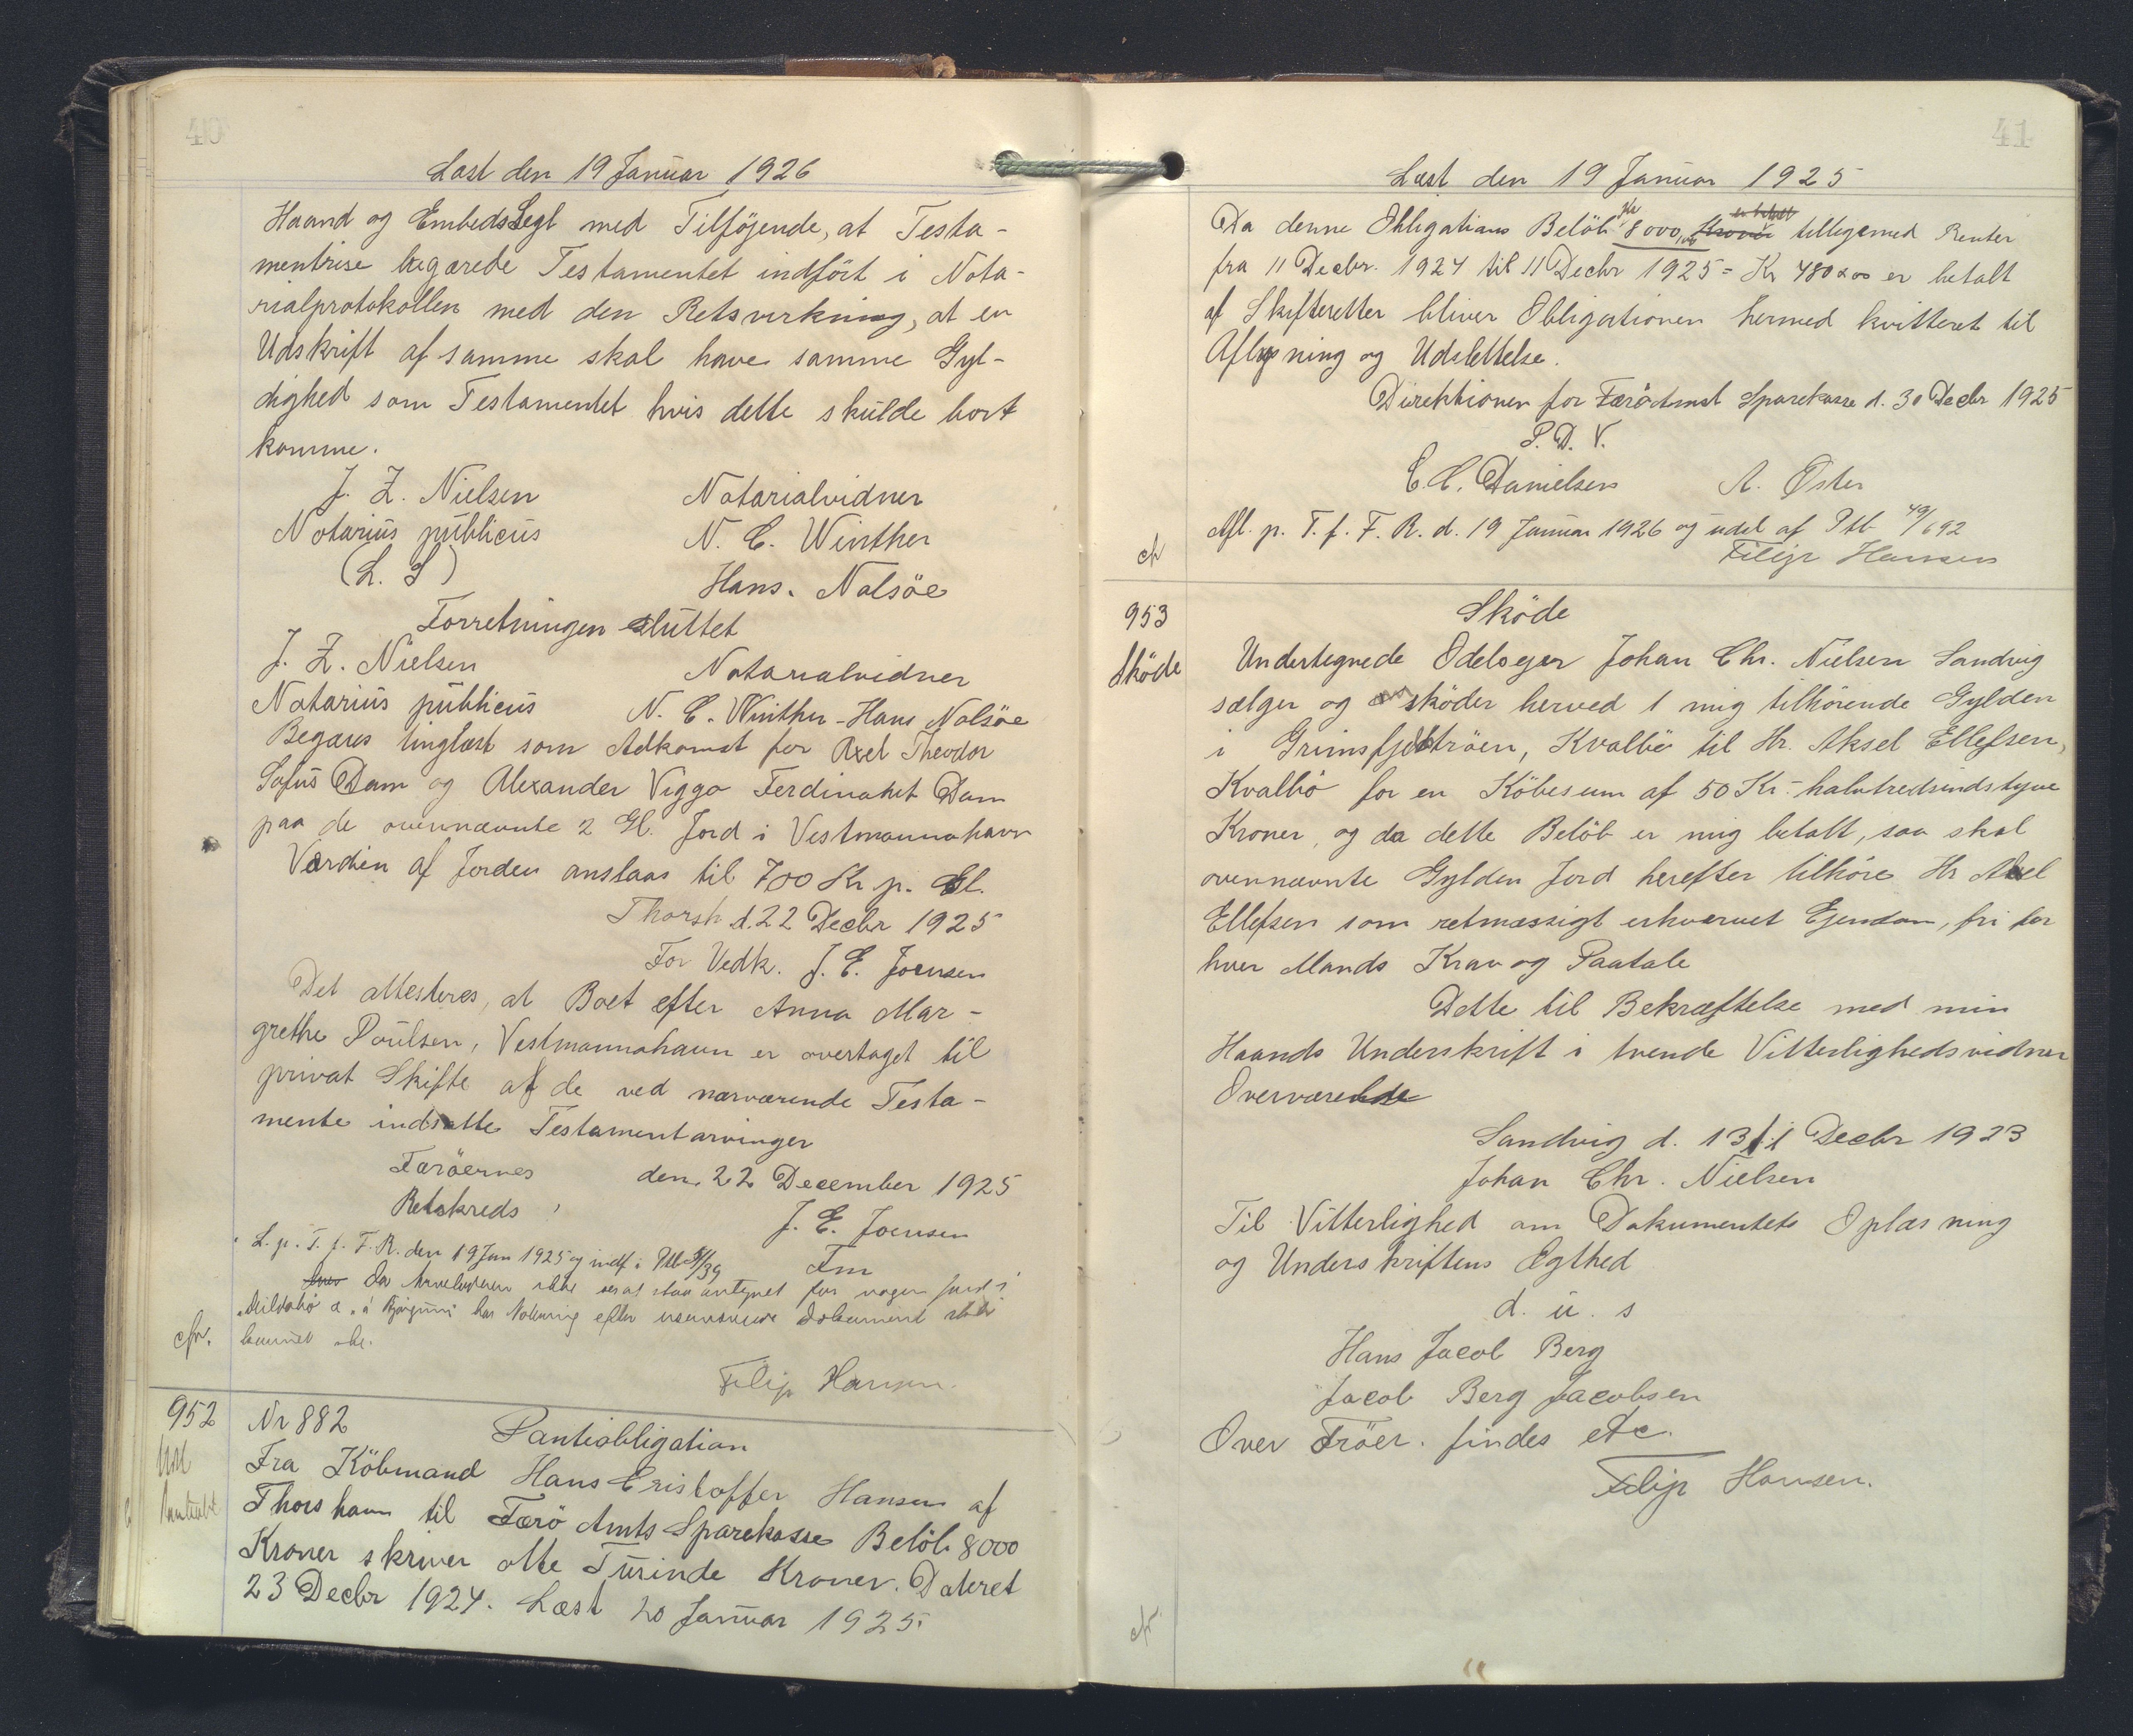 40
Læst den 19 Januar 1926
Haand og EmbedsSegl med Tilföjende, at Testa-
mentrise begærede Testamentet indfört i Nota-
rialprotokollen med den Retsvirkning, at en
Udskrift af samme skal have samme Gyl-
dighed som Testamentet hvis dette skulde bort
komme.
J. Z. Nielsen Notarialvidner
Notarius publicus N. C. Winther
(L. S) Hans. Nolsöe
Forretningen sluttet
J. Z. Nielsen Notarialvidner
Notarius publicus N. C. Winther - Hans Nolsöe
Begæres tinglæst som Adkomst for Axel Theodor
Sofus Dam og Alexander Viggo Ferdinant Dam
paa de ovennævnte 2 Gl. Jord i Vestmannahavn
Værdien af Jorden anslaas til 700 Kr p. Gl.
Thorsh d. 22 Decbr 1925
For Vedk. J. E. Joensen
Det attesteres, at Boet efter Anna Mar-
grethe Poulsen, Vestmannahavn er overtaget til
privat Skifte af de ved nærværende Testa-
mente indsatte Testamentarvinger
Færöernes den 22 December 1925
Retskreds J. E. Joensen
Fm
L. p. T. f. F. R. den 19 Jan 1925 og indf i Ptb 51/39
Da ikke ses at staa antegnet for nogen Jord i
har Notering efter Dokument ikke
kunnet
cfr.
Filip Hansen.
952 Nr 882 Pantiobligation
Fra Köbmand Hans Cristoffer Hansen af
Thorshavn til Færö Amts Sparekasse Belöb 8000
Kroner skriver otte Tusinde Kroner. Dateret
23 Decbr 1924. Læst 20 Januar 1925.
41
Læst den 19 Januar 1925
Da denne Obligations Belöb 8000 Kroner tilligemed Renter
fra 11 Decbr. 1924 til 11 Decbr 1925 = Kr 480 x 00 er betalt
af Skifteretter bliver Obligationen hermed kvitteret til
Aflysning og Udslettelse.
Direktionen for Færöamst Sparekasse d. 30 Decbr 1925
P. D. V.
C. C. Danielsen A. Öster
Afl. p. T. f. F. R. d. 19 Januar 1926 og udsl af Ptb 49/692
cfr Filip Hansen
953 Sköde
Sköde Undertegnede Odelsejer Johan Chr. Nielsen Sandvig
sælger og sköder herved 1 mig tilhörende Gylden
i Grimsfjeldtröen, Kvalbö til Hr. Aksel Ellefsen,
Kvalbö for en Köbesum af 50 Kr - halvtredsindstyve
Kroner, og da dette Belöb er mig betalt, saa skal
ovennævnte Gylden Jord herefter tilhöre Hr Axel
Ellefsen som retmæssigt erhvervet Ejendom, fri for
hver Mands Krav og Paatale
Dette til Bekræftelse med min
Haands Underskrift i tvende Vitterlighedsvidner
Overværelse
Sandvig d. 13 Decbr 1923
Johan Chr. Nielsen
Til Vitterlighed om Dokumentets Oplæsning
og Underskriftens Ægthed
d. u. s
Hans Jacob Berg
Jacob Berg Jacobsen
Over Tröer. findes etc.
Filip Hansen.
cfr.